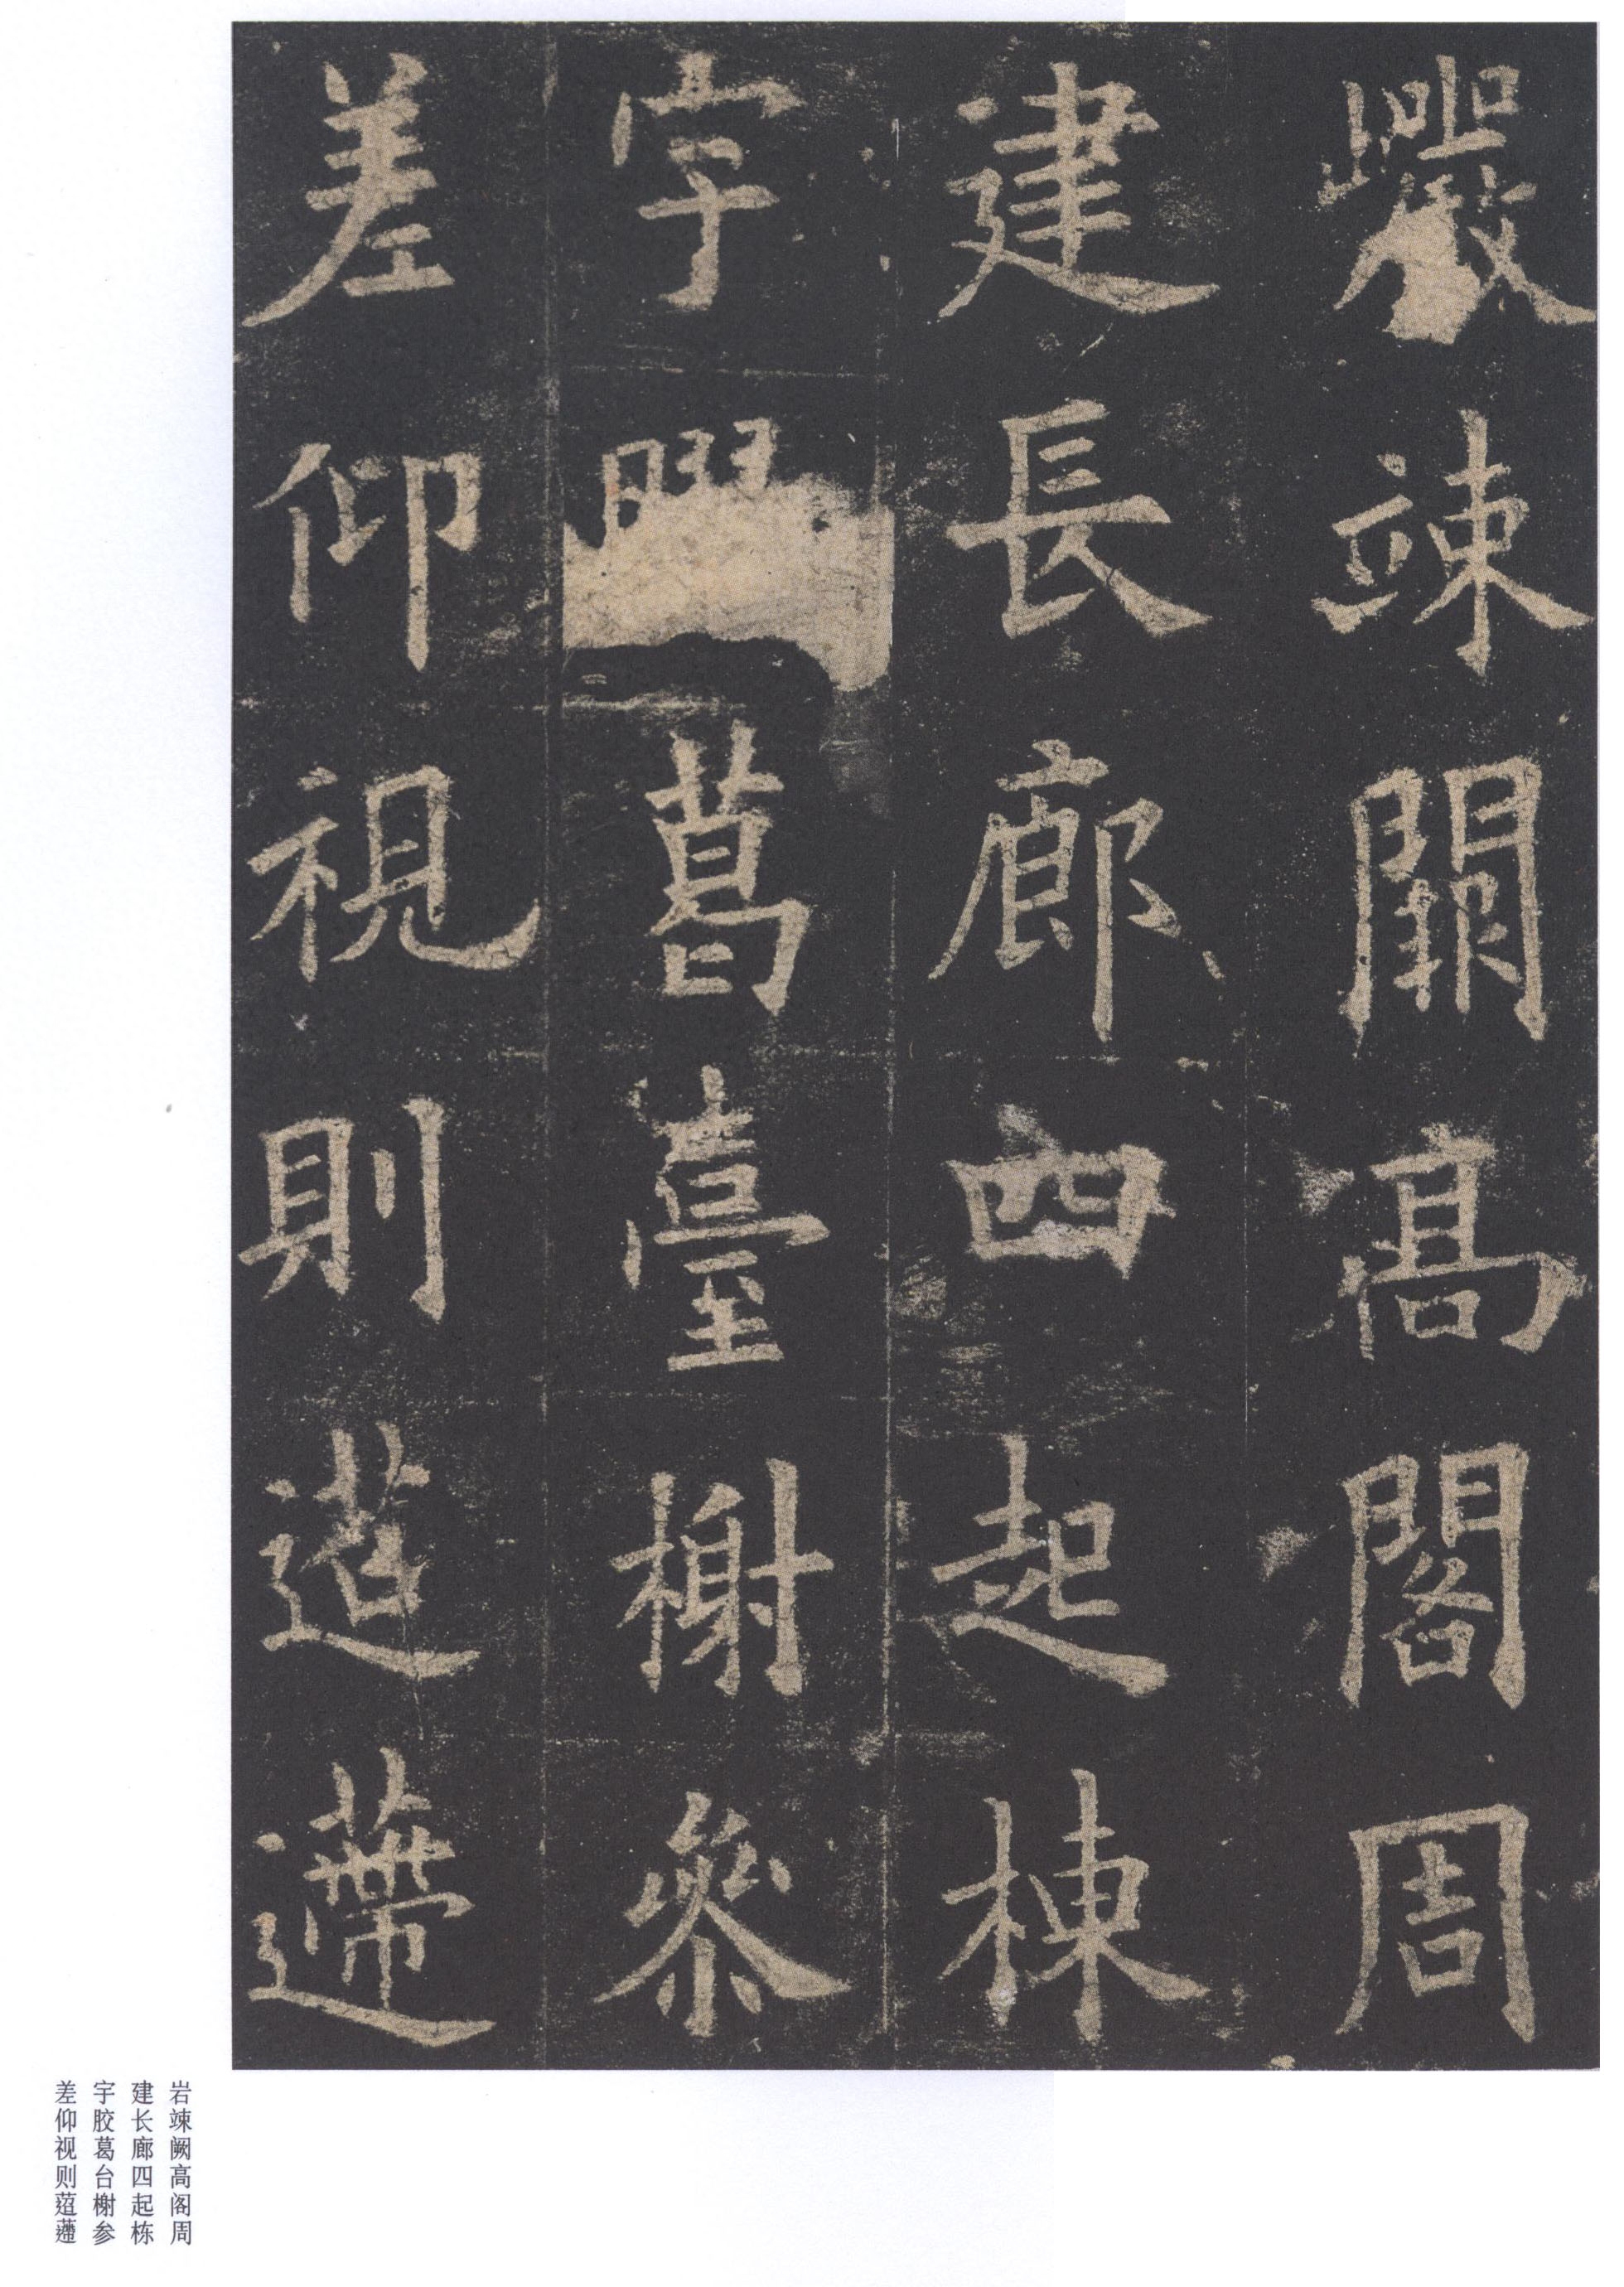 巖竦闕高閣周
建長廊四起棟
宇膠葛臺榭參
差仰視則迢遰
岩竦阙高阁周
建长廊四起栋
宇胶葛台榭参
差仰视则